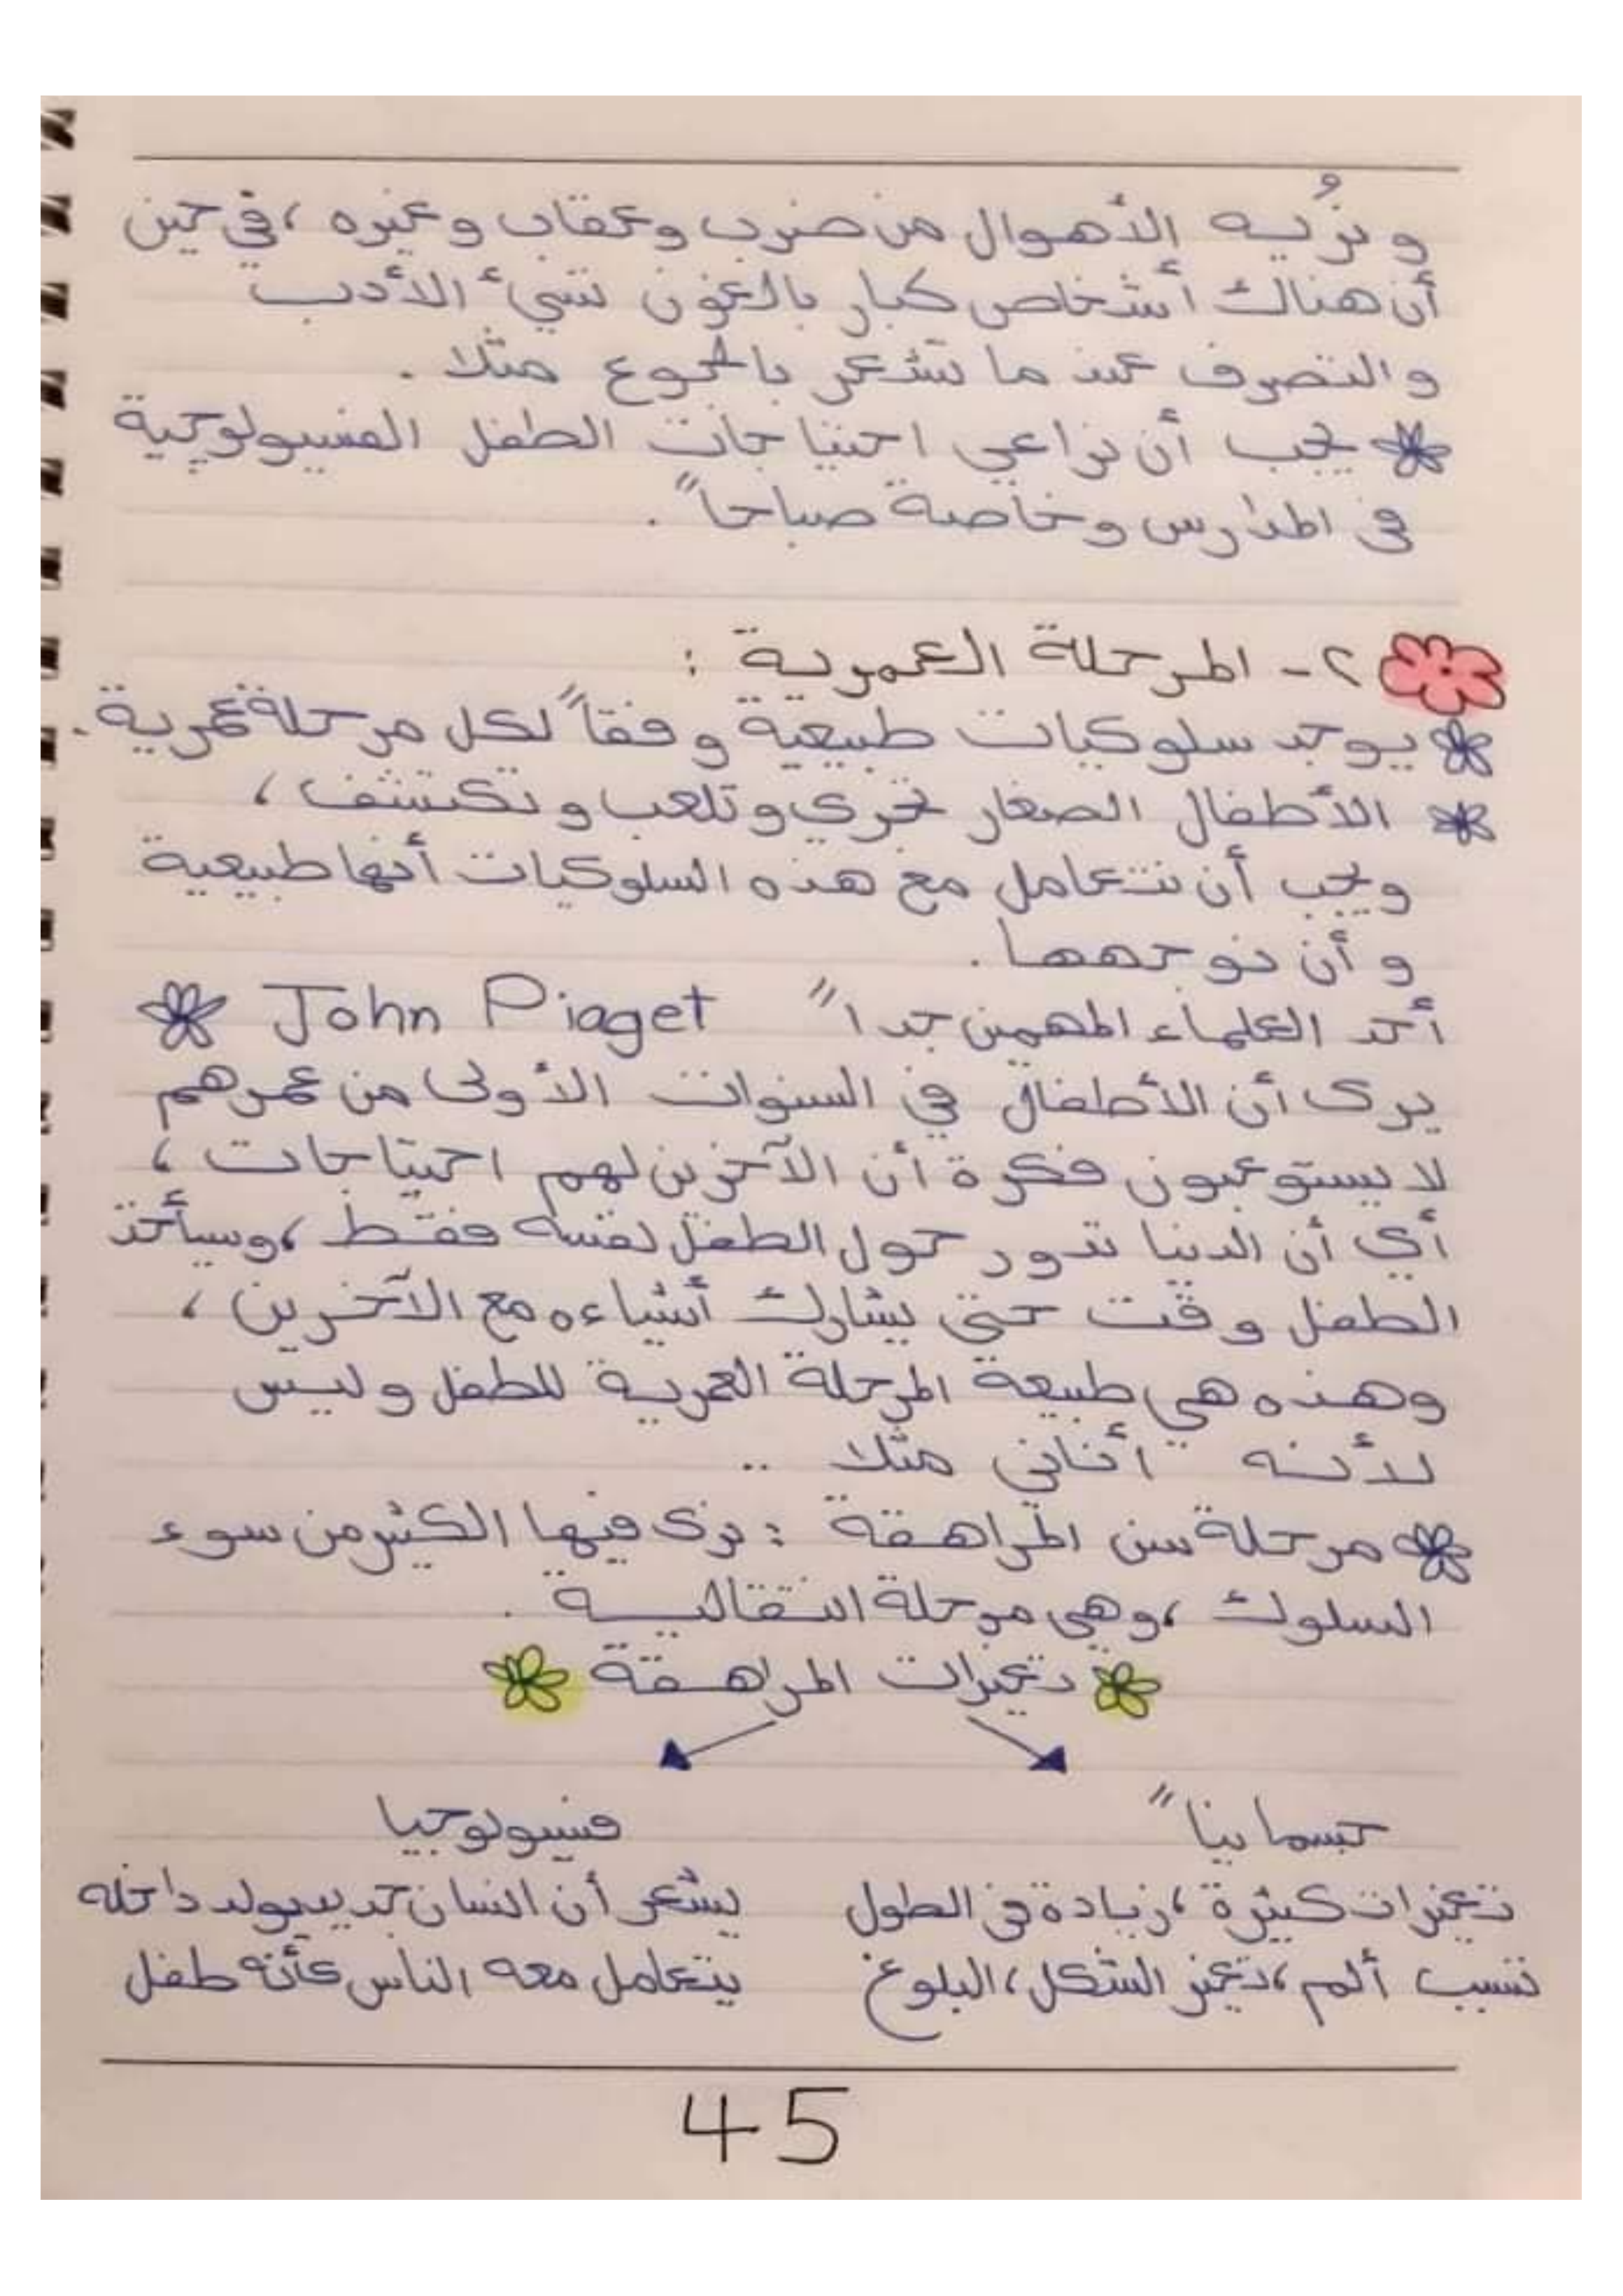 و نُريه الأهوال من ضرب وعقاب وغيره ، في حين
أن هناك أشخاص كبار بالغون تسيء الأدب
والتصرف عند ما تشعر بالجوع مثلا .
يجب أن نراعي احتياجات الطفل الفسيولوجية
في المدارس وخاصة صباحاً .
٢- المرحلة العمرية :
يوجد سلوكيات طبيعية وفقاً لكل مرحلة عمرية .
الأطفال الصغار تجري و تلعب و تكتشف ،
ويجب أن نتعامل مع هذه السلوكيات أنها طبيعية
و أن نوجهها .
أحد العلماء المهمين جداً John Piaget
يرى أن الأطفال في السنوات الأولى من عمرهم
لا يستوعبون فكرة أن الآخرين لهم احتياجات ،
أي أن الدنيا تدور حول الطفل نفسه فقط ، وسيأخذ
الطفل وقت حتى يشارك أشياءه مع الآخرين ،
وهذه هي طبيعة المرحلة العمرية للطفل وليس
لأنه أناني مثلا ..
مرحلة سن المراهقة : نرى فيها الكثير من سوء
السلوك ، وهي مرحلة انتقالية .
تغيرات المراهقة
جسمانياً فسيولوجيا
تغيرات كثيرة ، زيادة في الطول يشعر أن انسان جديد يولد داخله
تسبب ألم ، تغير الشكل ، البلوغ يتعامل معه الناس كأنه طفل
45